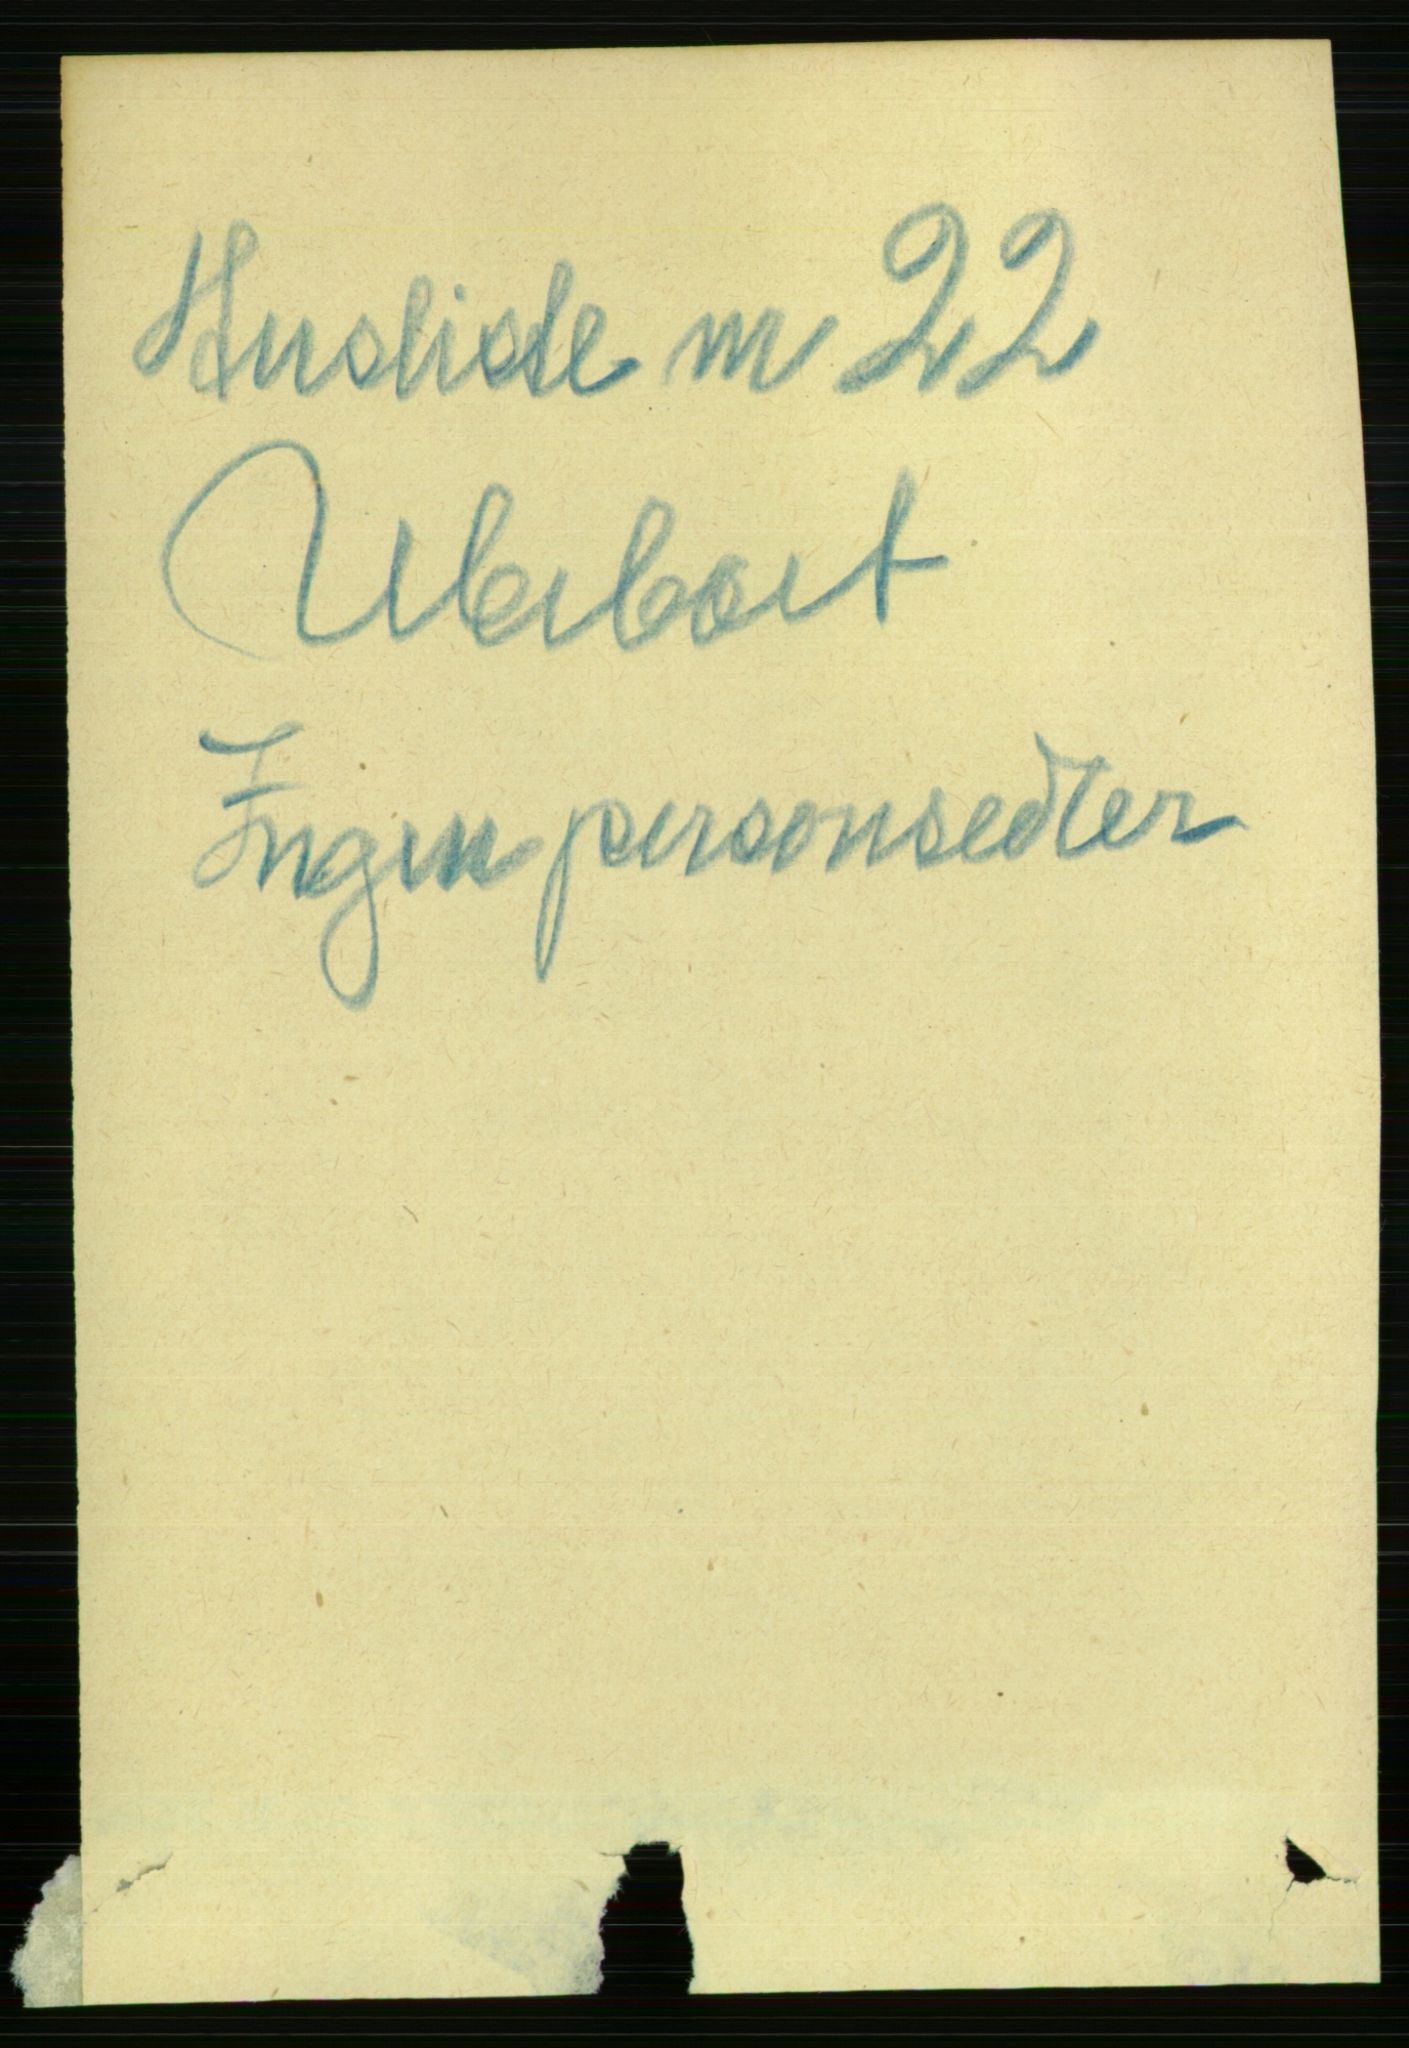 Husliste nr 22
Ubeboet
Ingen personsedler